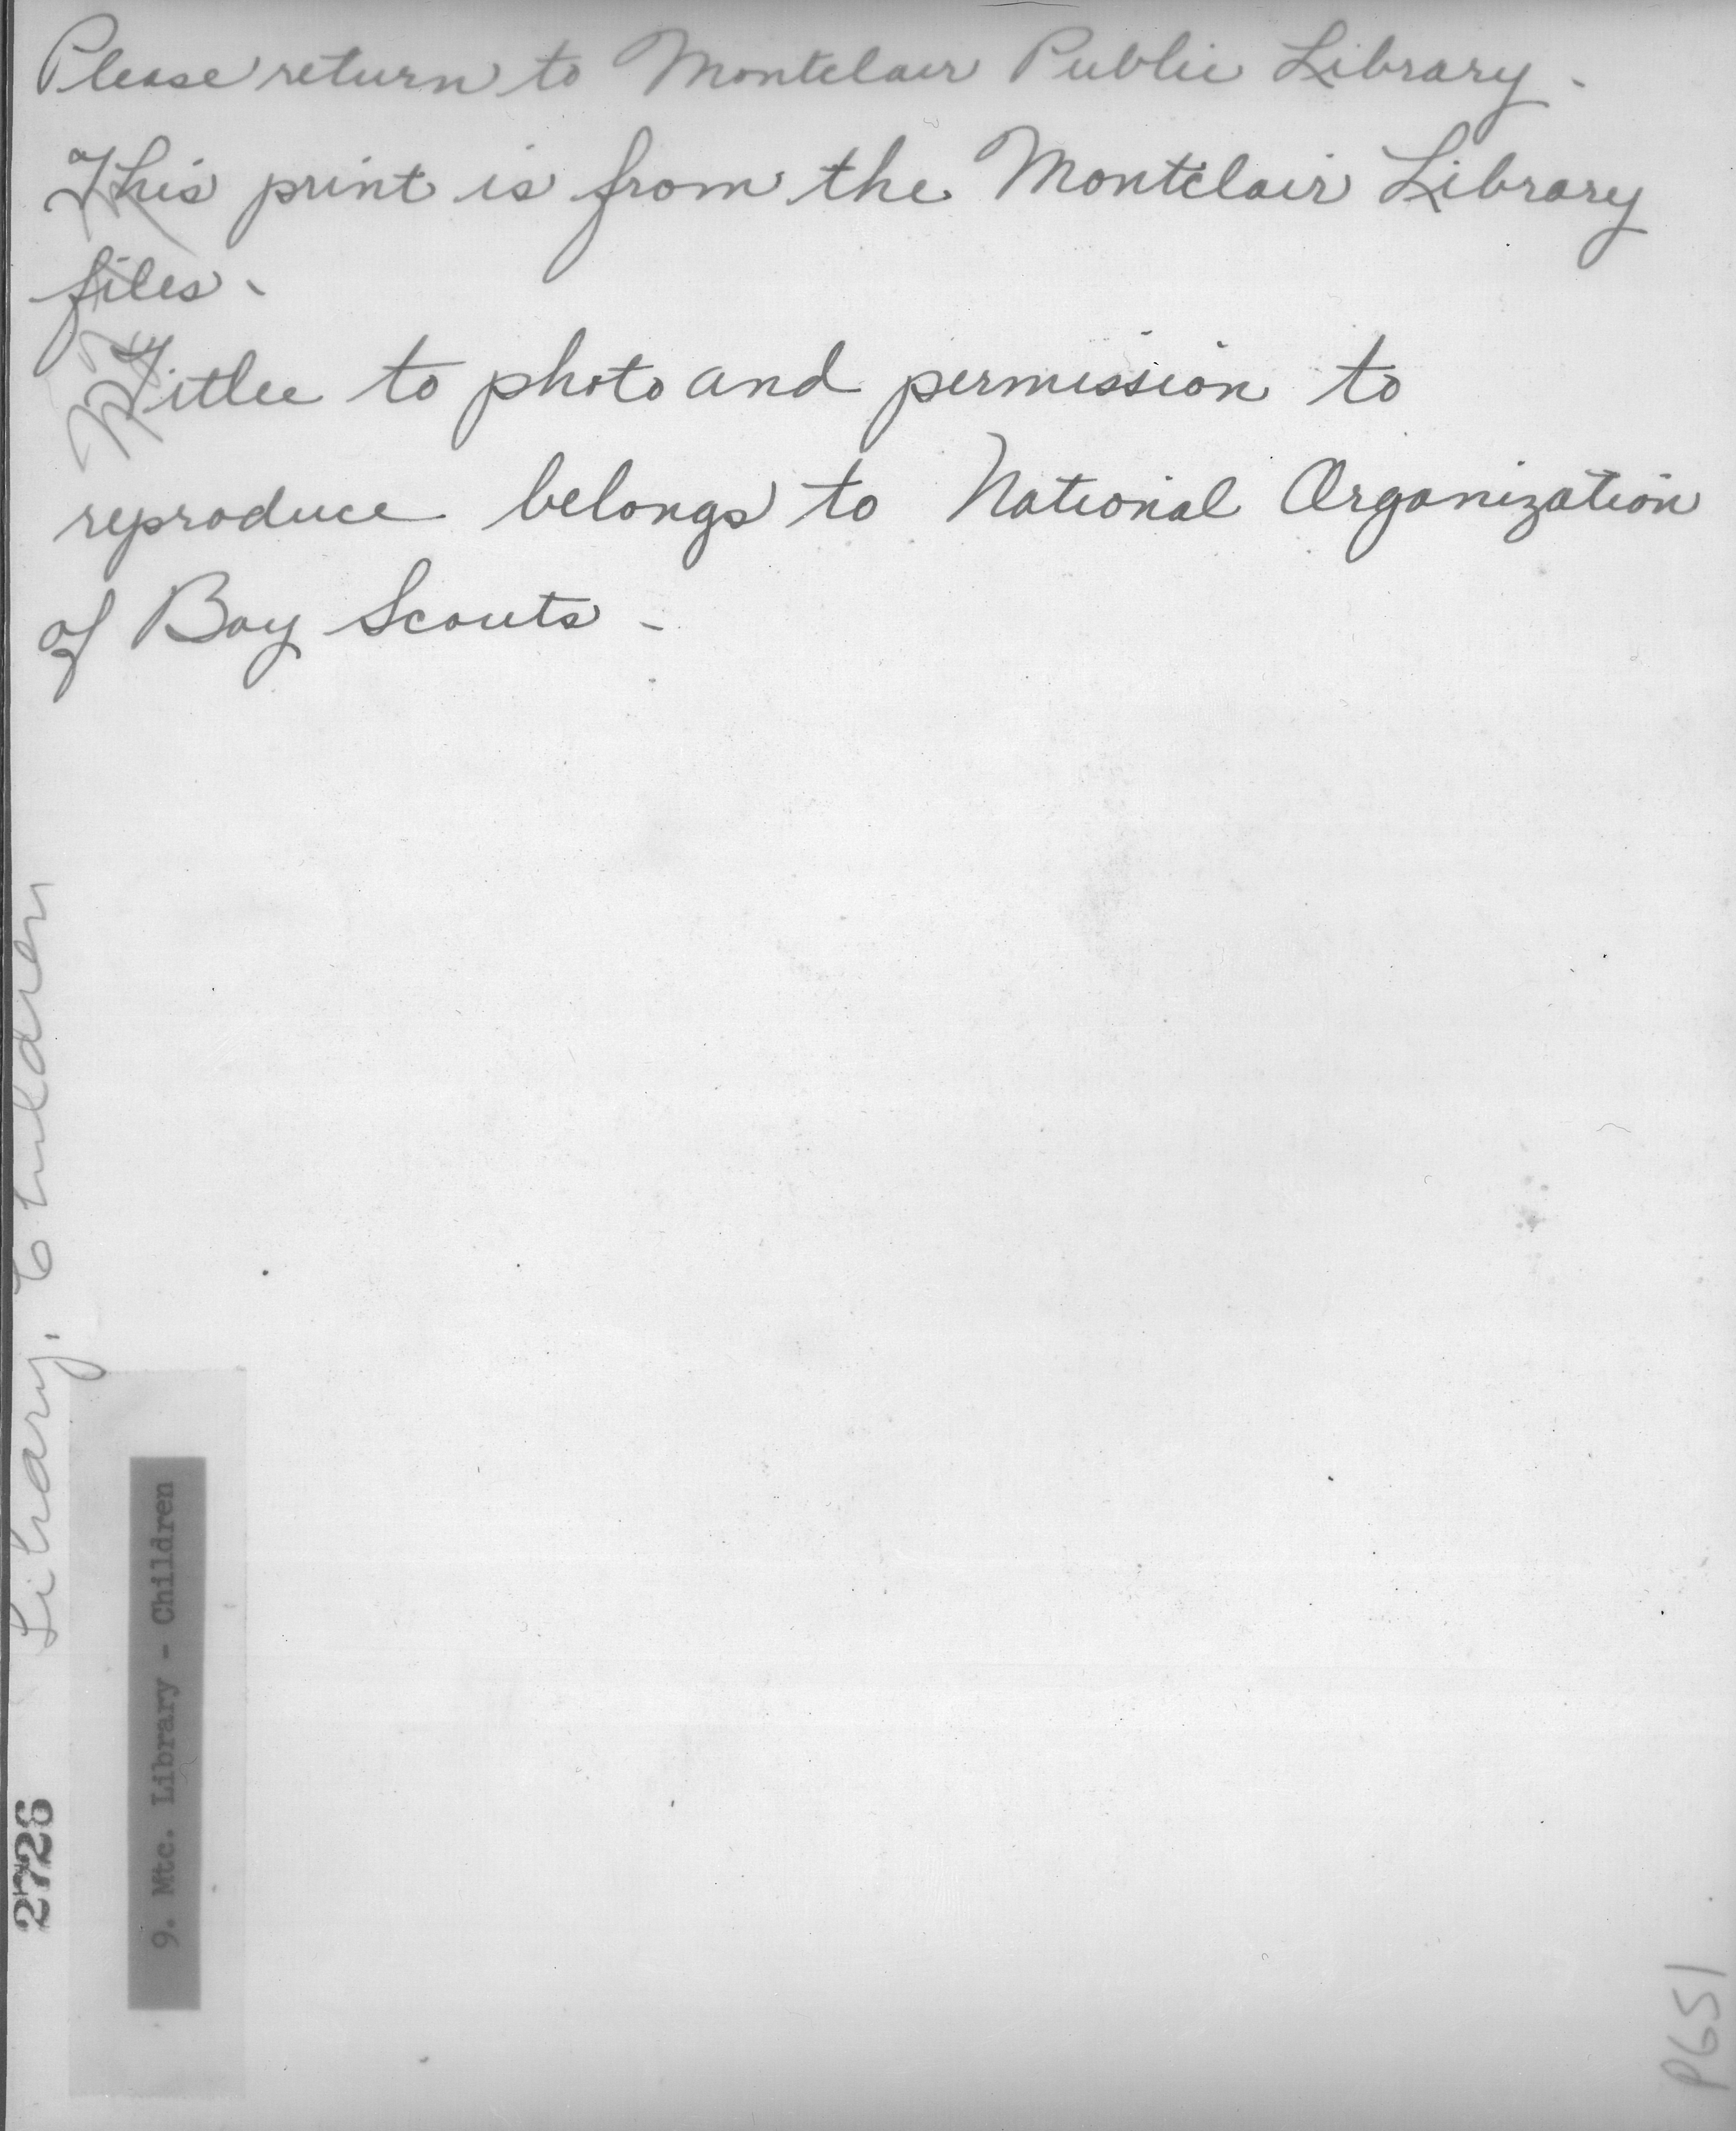 Please return to Montclair Public Library.
This print is from the Montclair Library
files.
Title to photo and permission to
reproduce belongs to National Organization
of Boy Scouts.
Library, Children
9. Mtc. Library - Children
2726
P651